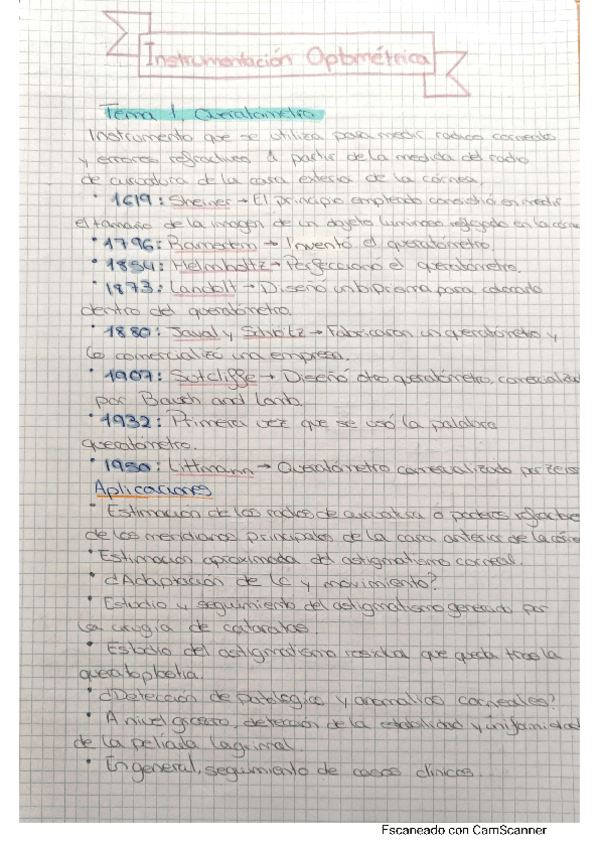 Instrumentación Optométrica
Tema 1. Queratómetro
Instrumento que se utiliza para medir radios corneales
y errores refractivos a partir de la medida del radio
de curvatura de la cara externa de la córnea.
• 1619: Sheiner → El principio empleado consistió en medir
el tamaño de la imagen de un objeto luminoso reflejado en la córnea
• 1796: Ramsden → Inventó el queratómetro.
• 1854: Helmholtz → Perfeccionó el queratómetro.
• 1873: Landolt → Diseñó un biprisma para colocarlo
dentro del queratómetro.
• 1880: Javal y Schiötz → Fabricaron un queratómetro y
lo comercializó una empresa.
• 1907: Sutcliffe → Diseñó otro queratómetro, comercializado
por Bausch and Lomb.
• 1932: Primera vez que se usó la palabra
queratómetro.
• 1950: Littmann → Queratómetro comercializado por Zeiss
Aplicaciones
• Estimación de los radios de curvatura o poderes refractivos
de los meridianos principales de la cara anterior de la córnea
• Estimación aproximada del astigmatismo corneal.
• ¿Adaptación de LC y movimiento?
• Estudio y seguimiento del astigmatismo generado por
la cirugía de cataratas.
• Estudio del astigmatismo residual que queda tras la
queratoplastia.
• ¿Detección de patologías y anomalías corneales?
• A nivel grosso, detección de la estabilidad y uniformidad
de la película lagrimal.
• En general, seguimiento de casos clínicos.
Escaneado con CamScanner